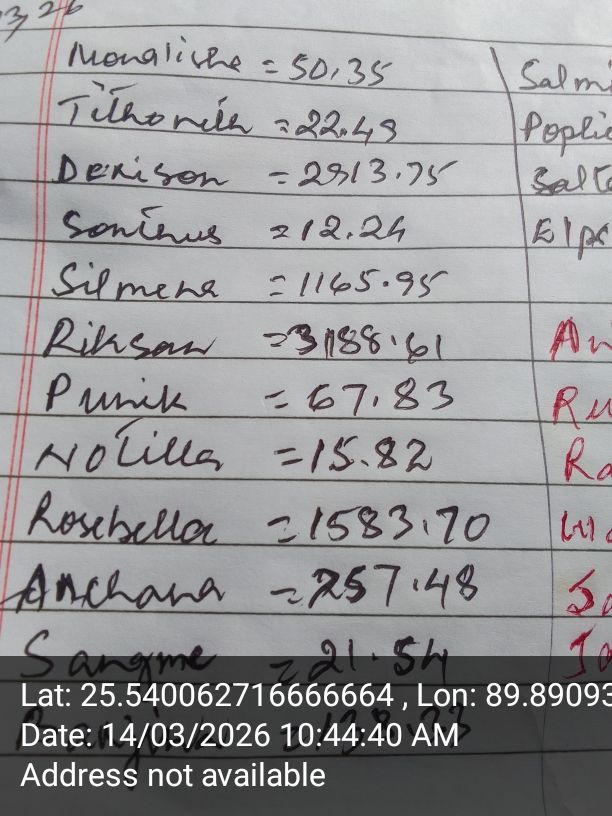 3,26
Monalisha = 50.35
Tithonih = 22.49
Denison = 2913.75
Sontinus = 12.24
Silmena = 1165.95
Riksan = 3188.61
Punik = 67.83
Notilla = 15.82
Rosebella = 1583.70
Anchana = 257.48
Sangme = 21.54
Salmi
Poplic
Salte
Elps
An
Ru
Ra
Sa
Ja
Lat: 25.540062716666664 , Lon: 89.89093
Date: 14/03/2026 10:44:40 AM
Address not available